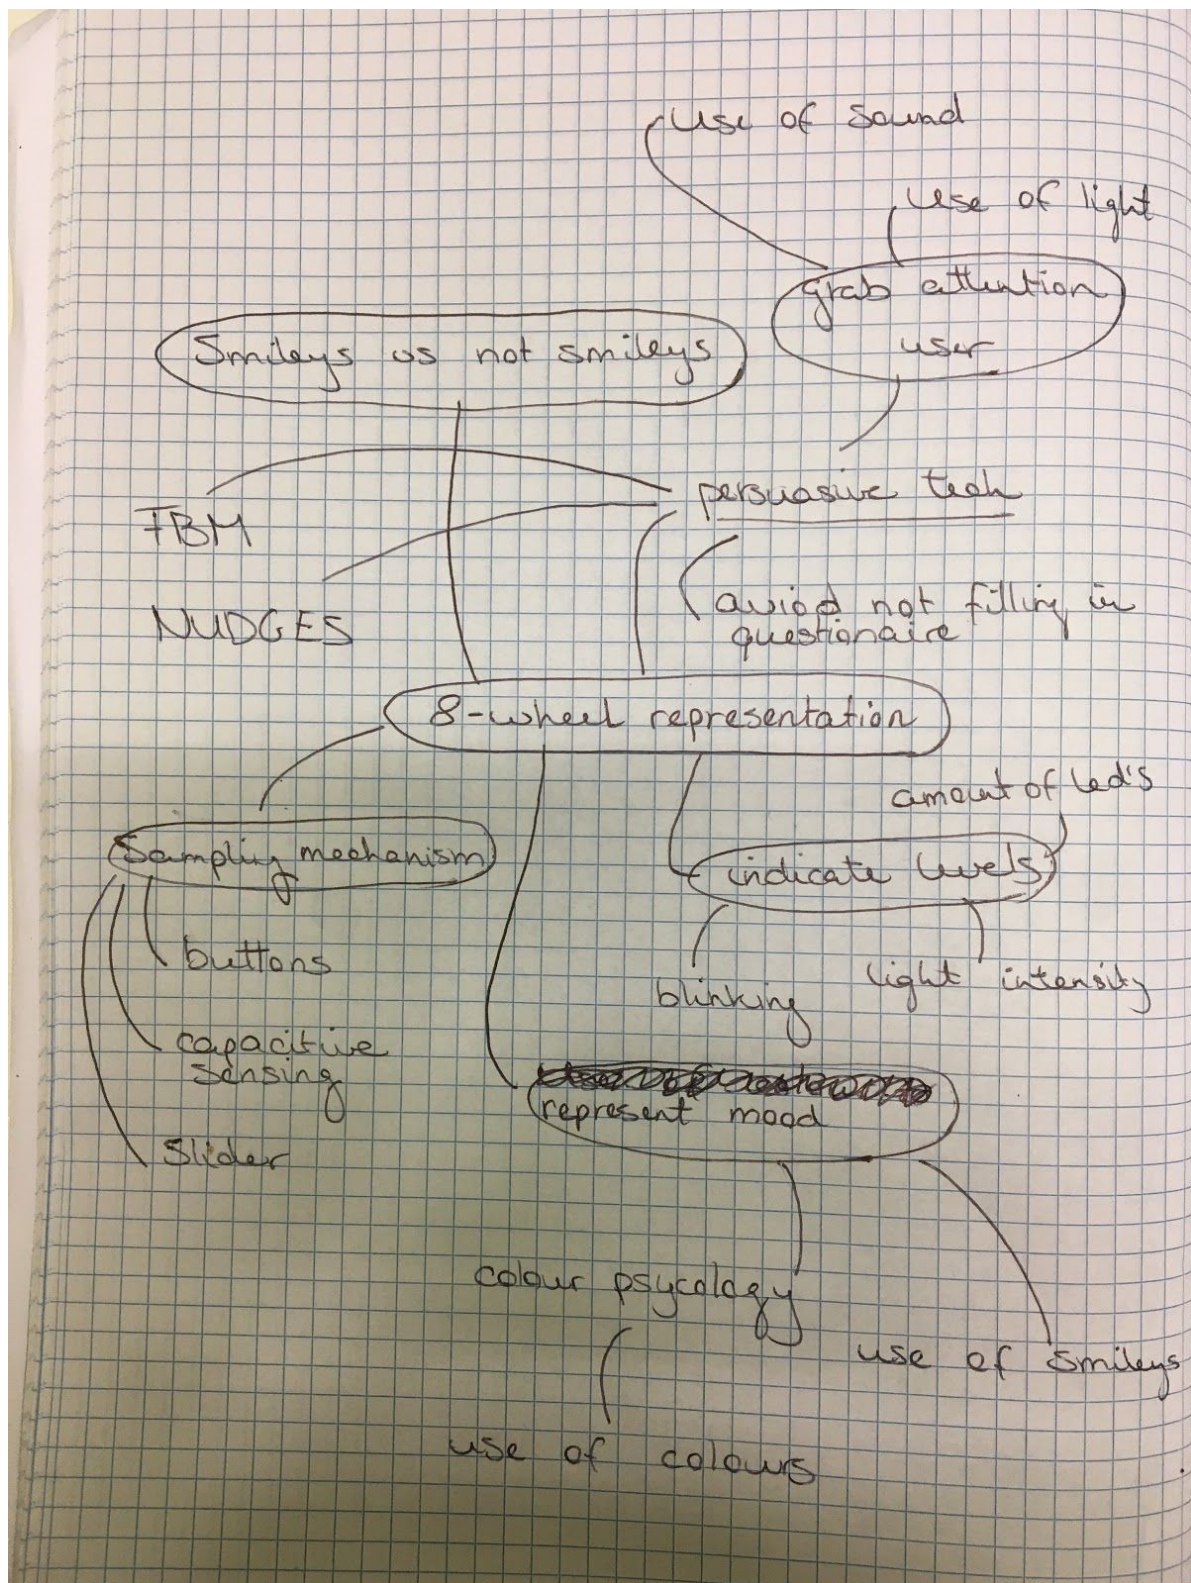 use of sound
use of light
grab attention
user
Smileys vs not smileys
persuasive tech
FBM
aviod not filling in
questionaire
NUDGES
8-wheel representation
amount of led's
Sampling mechanism
indicate levels
buttons
light intensity
blinking
capacitive
sensing
represent mood
Slider
colour psycology
use of smileys
use of colours